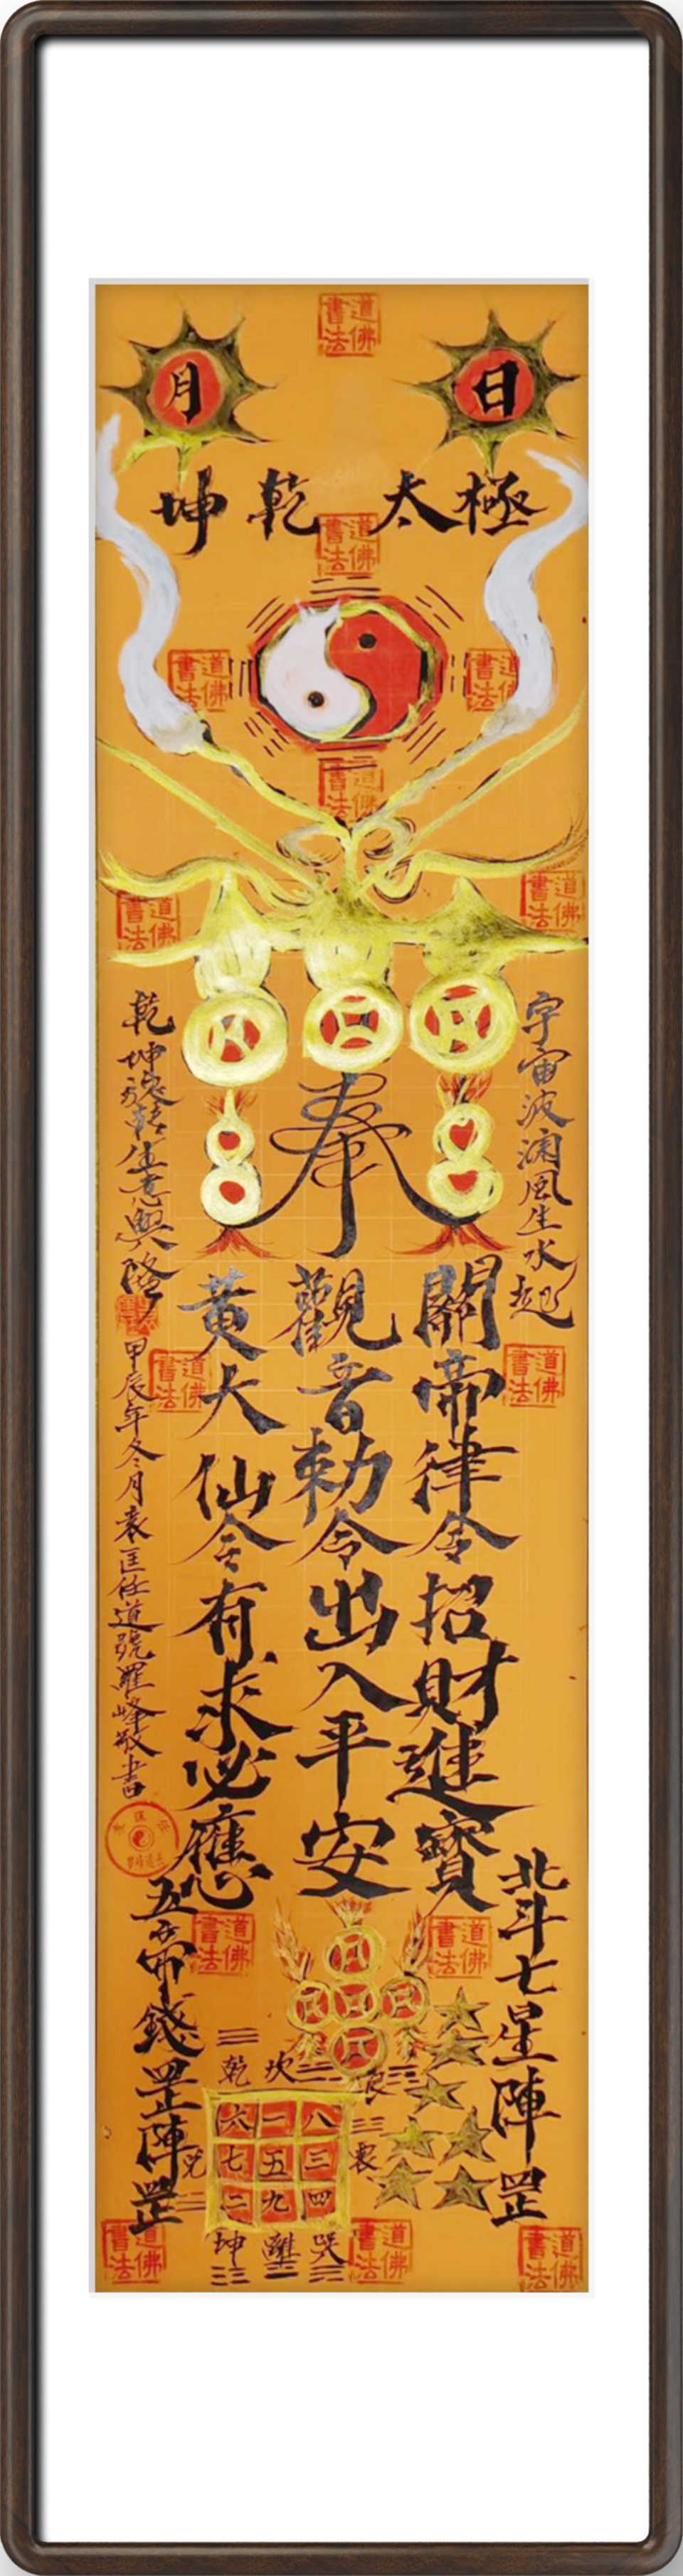 日
月
極太乾坤
宇宙波瀾風生水起
奉
關帝律令招財進寶
觀音勅令出入平安
黃大仙令有求必應
乾坤旋轉生意興隆
甲辰年冬月袁匡任道號羅峰敬書
北斗七星陣罡
五帝錢罡陣罡
乾 坎 艮
六 一 八
兌 七 五 三 震
二 九 四
坤 離 巽
道佛書法
道佛書法
道佛書法
道佛書法
道佛書法
道佛書法
道佛書法
道佛書法
道佛書法
道佛書法
道佛書法
道佛書法
道佛書法
道佛書法